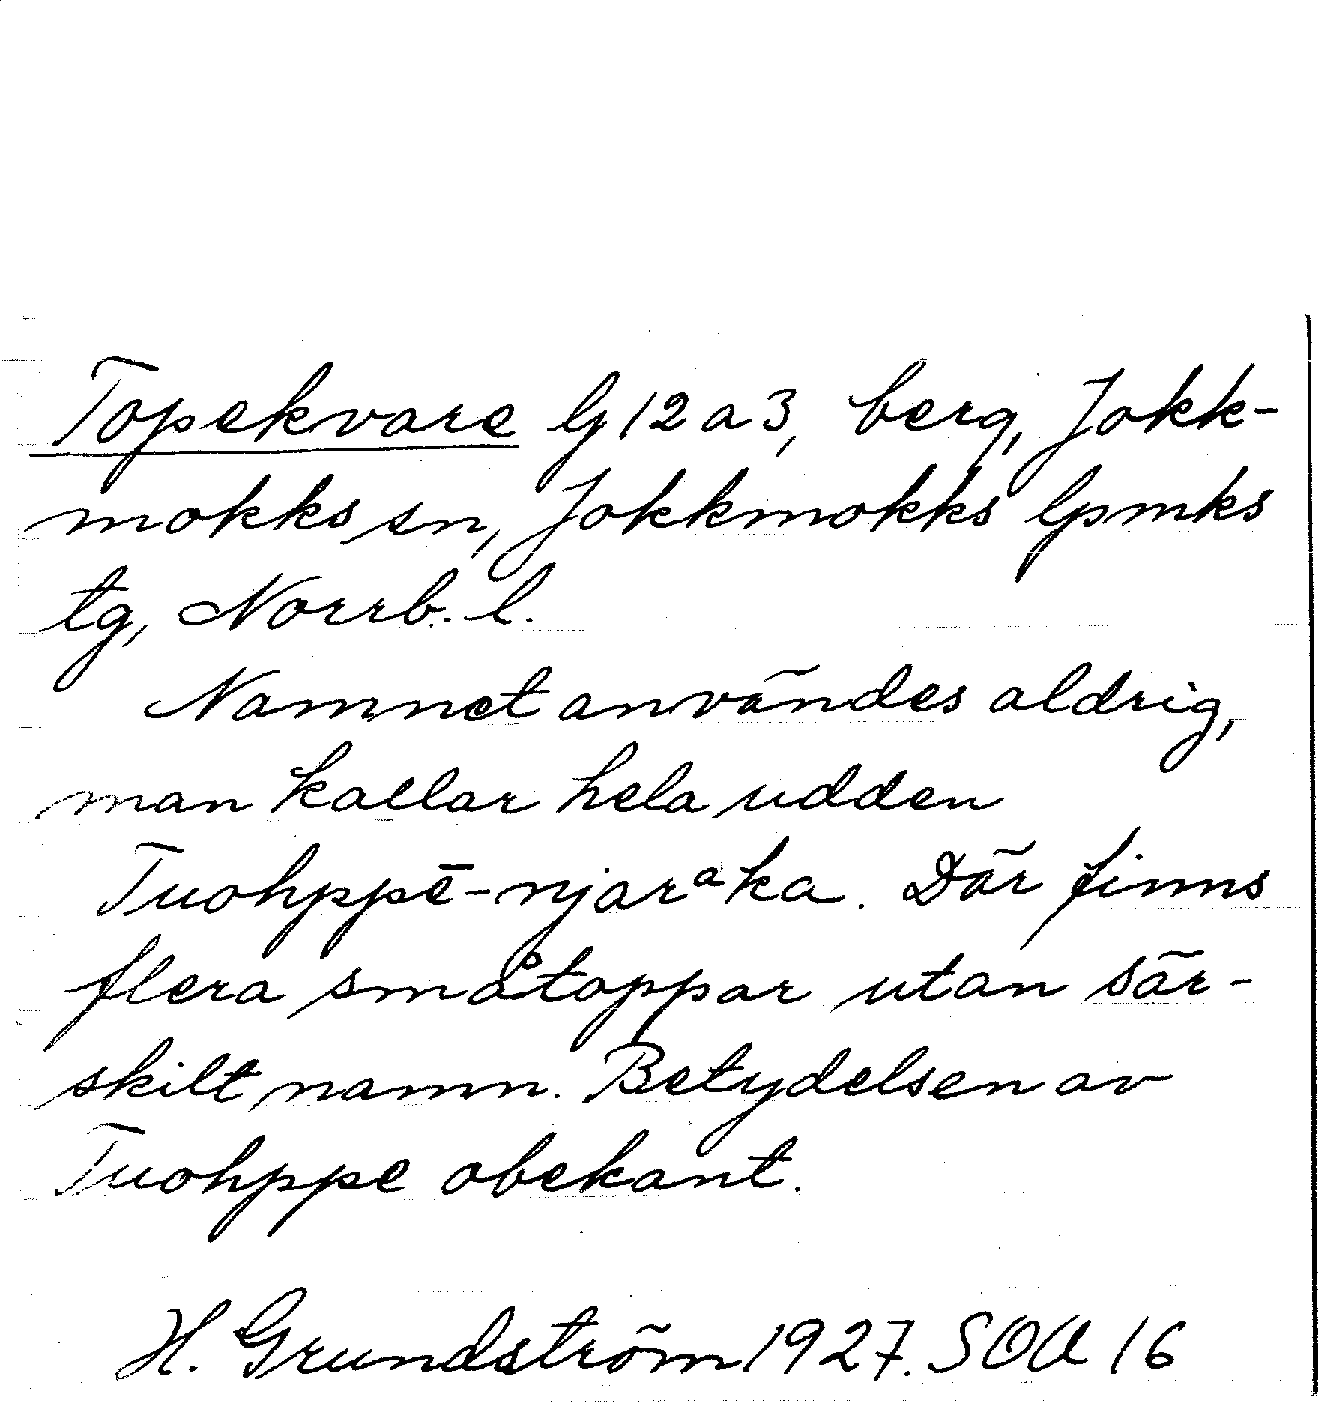 Topekvare lj 12 a 3, berg, Jokk-
mokks sn, Jokkmokks lpmks
tg, Norrb. l.
Namnet användes aldrig,
man kallar hela udden
Tuohppē-njarᵃka. Där finns
flera småtoppar utan sär-
skilt namn. Betydelsen av
Tuohppe obekant.
H. Grundström 1927. SOA 16